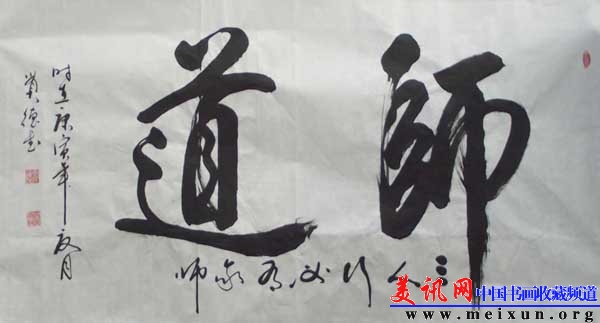 師道
三人行必有我师
时在庚寅年夏月
德志
美讯网 中国书画收藏频道
www.meixun.org